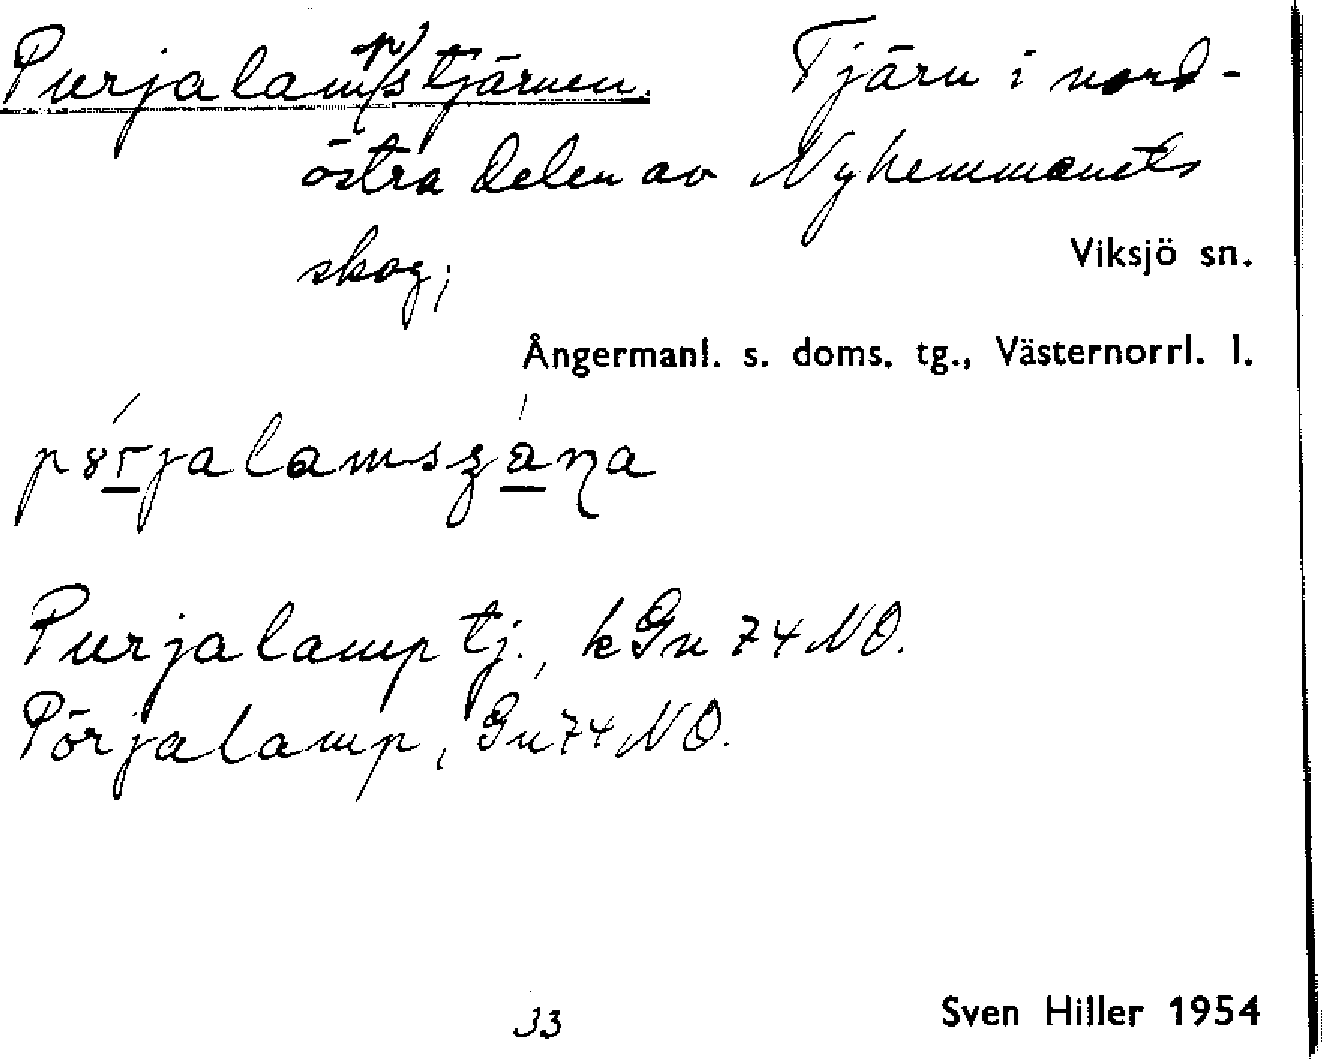 Purjalampstjärnen. Tjärn i nord-
östra delen av Nyhemmanets
skog;
Viksjö sn.
Ångermanl. s. doms. tg., Västernorrl. l.
Purjalamp tj., kGn 74 NO.
Pörjalamp, Gn 74 NO.
33
Sven Hiller 1954